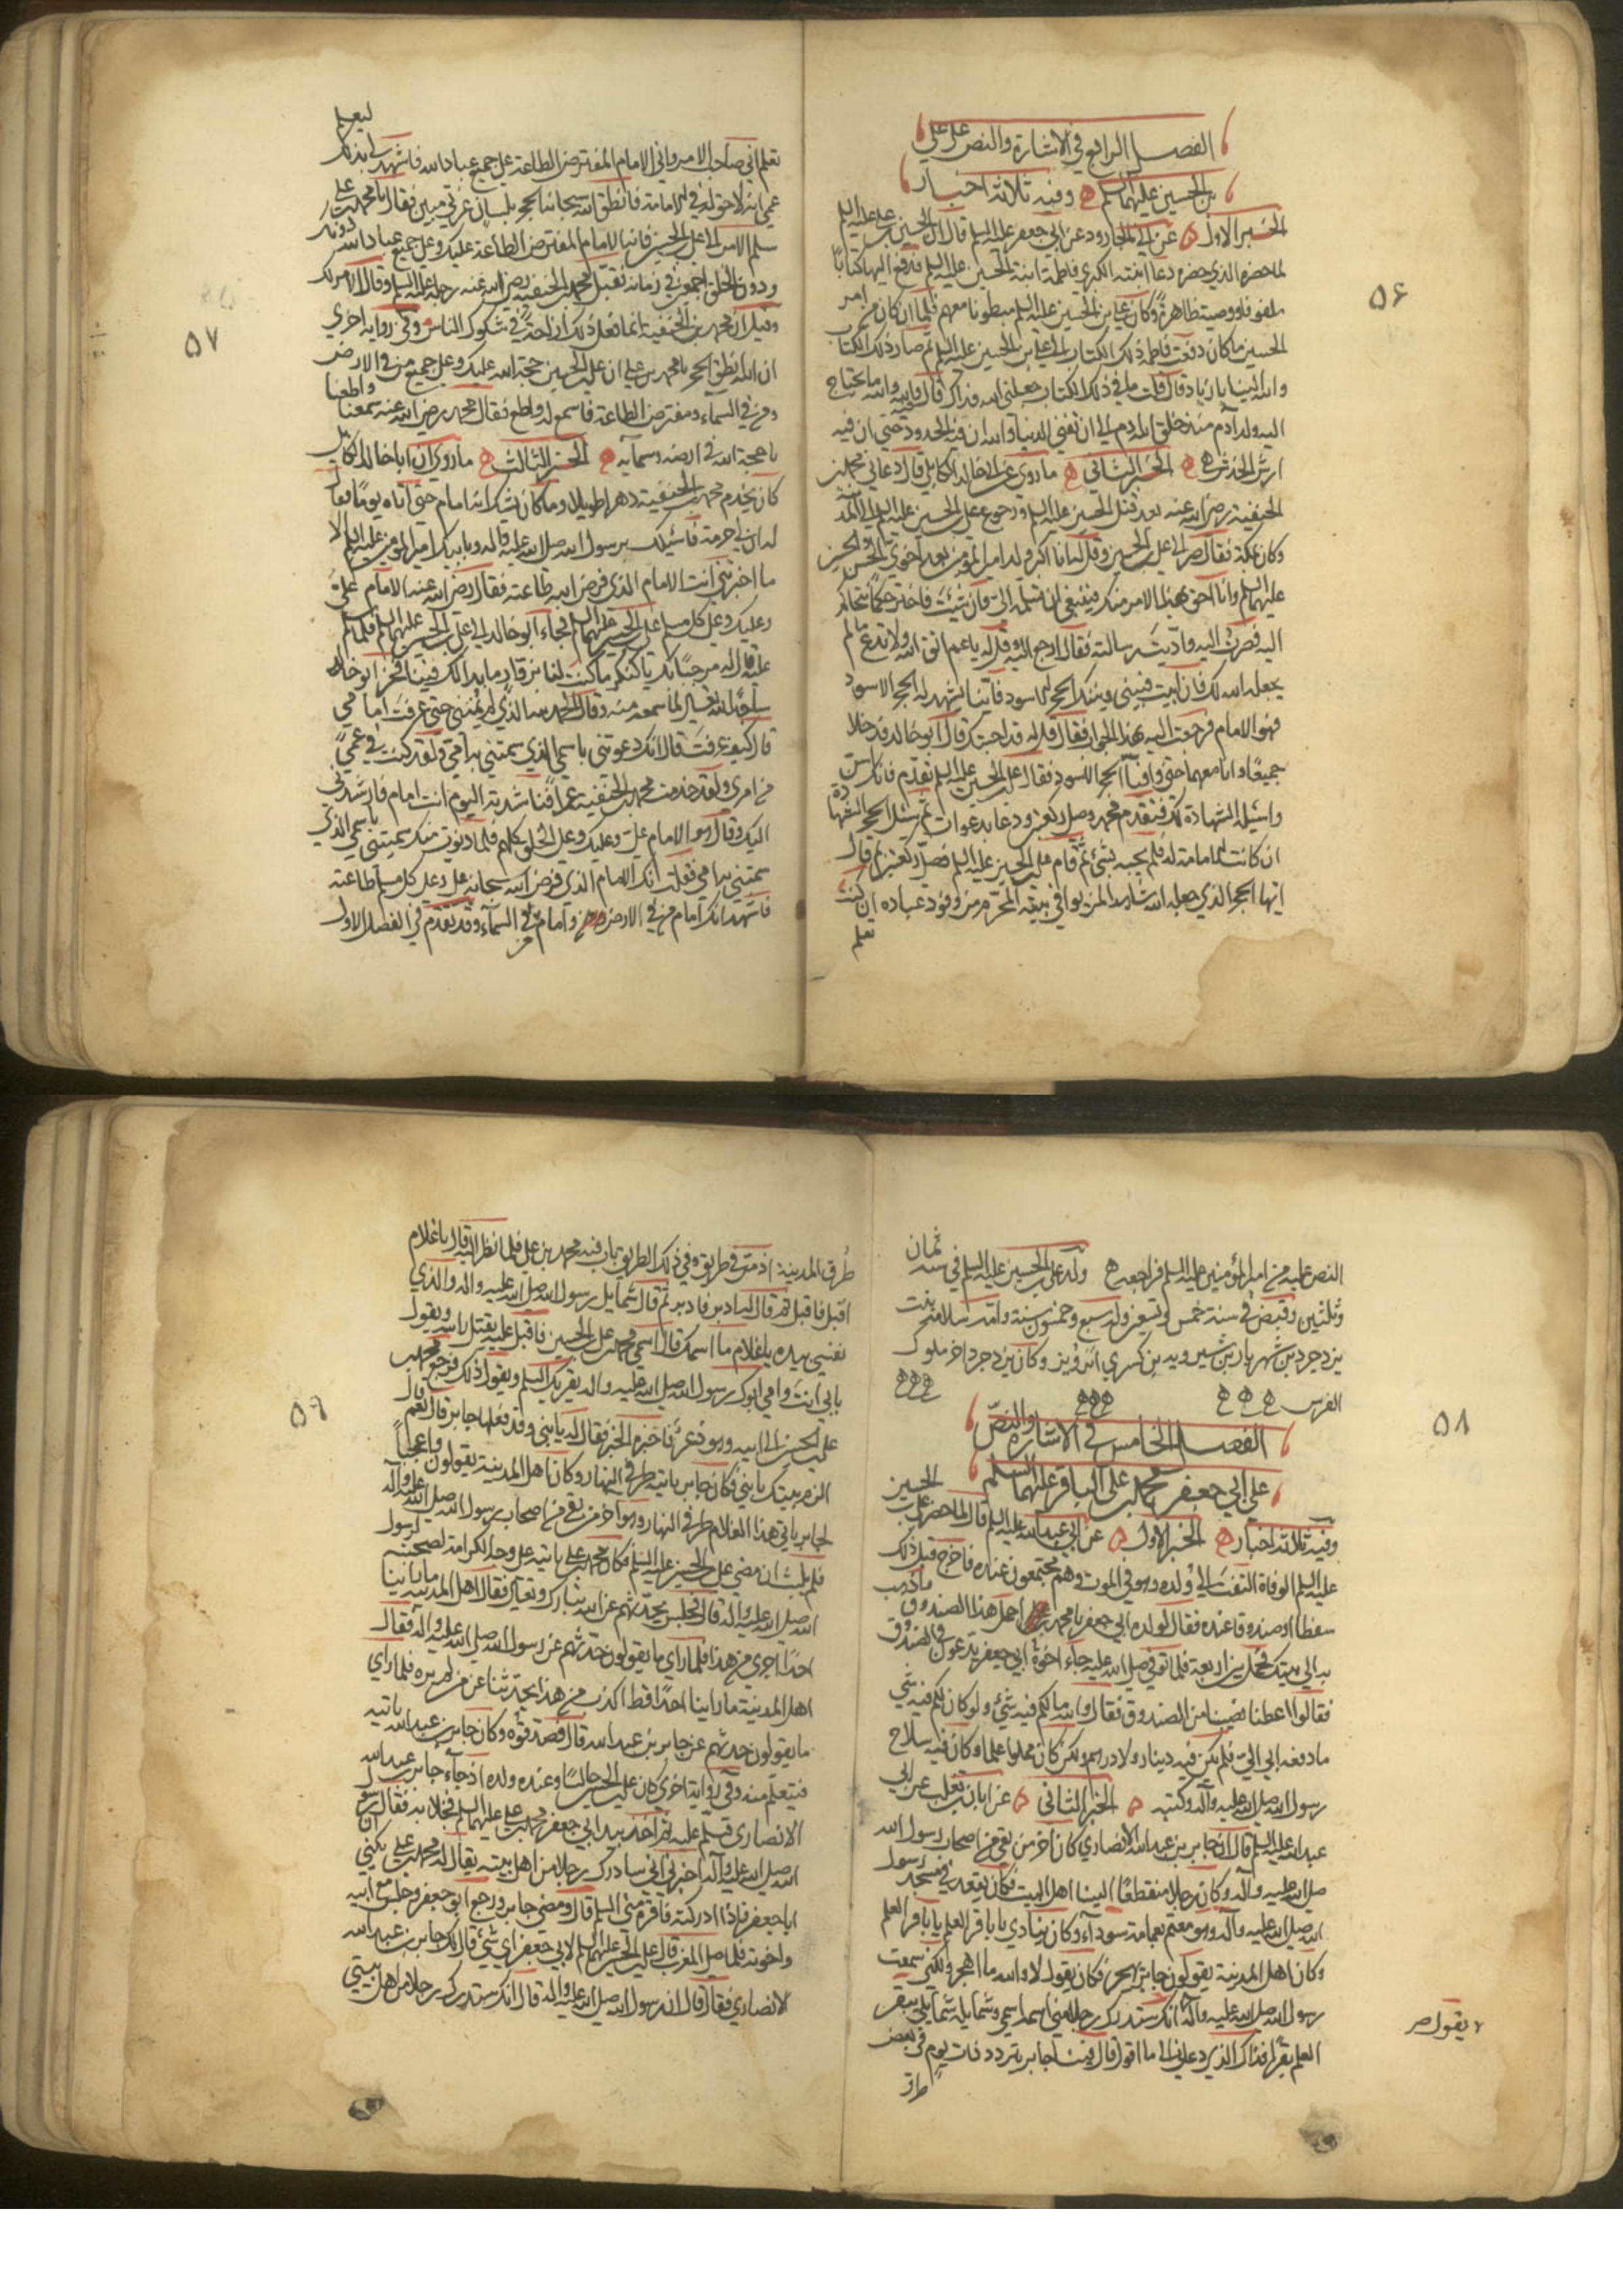 الفصل الرابع في الاشارة والنص على علي
بن الحسين عليهما السلم وفيه ثلاثة اخبار
الخبر الاول عن ابي الجارود عن ابي جعفر عليه السلم قال ان الحسين بن علي عليه السلم
لما حضره الذي حضره دعا ابنته الكبرى فاطمة ابنة الحسين عليه السلم فدفع اليها كتابا
ملفوفا ووصيته ظاهرة وكان علي بن الحسين عليه السلم مبطونا معهم فلما ان كان من امر
الحسين ما كان دفعت فاطمة ذلك الكتاب الى علي بن الحسين عليه السلم ثم صار ذلك الكتاب
والله الينا يا زياد قال قلت ما في ذلك الكتاب جعلني الله فداك قال فيه والله ما يحتاج
اليه ولد آدم منذ خلق الله ادم الى ان تفنى الدنيا والله ان فيه الحدود حتى ان فيه
ارش الخدش الخبر الثاني ما روي عن ابي خالد الكابلي قال دعاني محمد بن
الحنفية رضي الله عنه بعد قتل الحسين عليه السلم ورجوع علي بن الحسين عليه السلم الى المدينة
وكان بمكة فقال صر الى علي بن الحسين وقل له انا اكبر ولد امير المؤمنين بعد اخوي الحسن والحسين
عليهما السلم وانا احق بهذا الامر منك فينبغي ان تسلمه الي فان شئت فاختر حكما نتحاكم
اليه فصرت اليه واديت رسالته فقال ارجع اليه وقل له يا عم اتق الله ولا تدع ما لم
يجعله الله لك فان ابيت فبيني وبينك الحجر الاسود فاينا شهد له الحجر الاسود
فهو الامام فرجعت اليه بهذا الجواب فقال قل له قد اجبتك قال ابو خالد فدخلا
جميعا وانا معهما حتى وافيا الحجر الاسود فقال علي بن الحسين عليه السلم تقدم فانك اسن
واسئله الشهادة لك فتقدم محمد وصلى ركعتين ودعا بدعوات ثم سئل الحجر الشهادة
ان كانت الامامة له فلم يجبه بشيء ثم قام علي بن الحسين عليه السلم فصلى ركعتين ثم قال
ايها الحجر الذي جعله الله شاهدا لمن يوافي بيته المحرم من وفود عباده ان كنت
تعلم
٥٦
تعلم اني صاحب الامر واني الامام المفترض الطاعة على جميع عباد الله فاشهد لي بذلك ليعلم
عمي انه لا حق له في الامامة فانطق الله سبحانه الحجر بلسان عربي مبين فقال يا محمد بن علي
سلم الامر الى علي بن الحسين فانه الامام المفترض الطاعة عليك وعلى جميع عباد الله دونك
ودون الخلق اجمعين في زمانه فقبل محمد بن الحنفية رضي الله عنه رجله عليه السلم وقال الامر لك
وقيل ان محمد بن الحنفية انما فعل ذلك ازاحة في شكوك الناس وفي رواية اخرى
ان الله انطق الحجر يا محمد بن علي ان علي بن الحسين حجة الله عليك وعلى جميع من في الارض
ومن في السماء ومفترض الطاعة فاسمع له واطع فقال محمد رضي الله عنه سمعنا واطعنا
يا حجة الله في ارضه وسمائه الخبر الثالث ما روي ان ابا خالد الكابلي
كان يخدم محمد بن الحنفية دهرا طويلا وما كان يشك انه امام حتى اتاه يوما فقال
له ان لي حرمة فاسئلك برسول الله صلى الله عليه وآله وبابيك امير المؤمنين عليه السلم الا
ما اخبرتني انت الامام الذي فرض الله طاعته فقال رضي الله عنه الامام علي
وعليك وعلى كل مسلم علي بن الحسين عليهما السلم فجاء ابو خالد الى علي بن الحسين عليهما السلم فلما سلم
عليه قال له مرحبا بك يا كنكر ما كنت لنا بزائر ما بدا لك فينا فخر ابو خالد
ساجدا لله تعالى لما سمعه منه وقال الحمد لله الذي لم يمتني حتى عرفت امامي
قال كيف عرفت قال انك دعوتني باسمي الذي سمتني به امي ولقد كنت في عمى
من امري ولقد خدمت محمد بن الحنفية عمرا فناشدته اليوم انت امام فارشدني
اليك وقال هو الامام علي وعليك وعلى الخلق كلهم فلما دنوت منك سميتني باسمي الذي
سمتني به امي فقلت انك الامام الذي فرض الله سبحانه علي وعلى كل مسلم طاعته
فاشهد انك امام من في الارض وامام من في السماء وقد تقدم في الفصل الاول
من
٥٧
النص عليه من امير المؤمنين عليه السلم فراجعه ولد علي بن الحسين عليه السلم في سنة ثمان
وثلثين وقبض في سنة خمس وتسعين وله سبع وخمسون سنة وامه سلامة بنت
يزدجرد بن شهريار بن شيرويه بن كسرى ابرويز وكان يزدجرد اخر ملوك
الفرس
الفصل الخامس في الاشارة والنص
على ابي جعفر محمد بن علي الباقر عليهما السلم
وفيه ثلاثة اخبار الخبر الاول عن ابي عبد الله عليه السلم قال لما حضر علي بن الحسين
عليه السلم الوفاة التفت الى ولده وهو في الموت وهم مجتمعون عنده فاخرج قبل ذلك
سفطا او صندوقا عنده فقال لولده ابي جعفر يا محمد احمل هذا الصندوق فاذهب
به الى بيتك فحمل بين اربعة فلما توفي صلى الله عليه جاء اخوة ابي جعفر يدعون في الصندوق
فقالوا اعطنا نصيبنا من الصندوق فقال والله ما لكم فيه شيء ولو كان لكم فيه شيء
ما دفعه ابي الي فلم يكن فيه دينار ولا درهم ولكن كان مملوا علما وكان فيه سلاح
رسول الله صلى الله عليه وآله وكتبه الخبر الثاني عن ابان بن تغلب عن ابي
عبد الله عليه السلم قال ان جابر بن عبد الله الانصاري كان اخر من بقي من اصحاب رسول الله
صلى الله عليه وآله وكان رجلا منقطعا الينا اهل البيت فكان يقعد في مسجد رسول
الله صلى الله عليه وآله وهو معتم بعمامة سوداء وكان ينادي يا باقر العلم يا باقر العلم
وكان اهل المدينة يقولون جابر يهجر فكان يقول لا والله ما اهجر ولكني سمعت
رسول الله صلى الله عليه وآله انك ستدرك رجلا مني اسمه اسمي وشمايله شمايلي يبقر
العلم بقرا فذاك الذي دعاني الى ما اقول قال فبينا جابر يتردد ذات يوم في بعض
طرق
يقول صر
٥٨
طرق المدينة اذ مر في طريق وفي ذلك الطريق باب فيه محمد بن علي فلما نظر اليه قال يا غلام
اقبل فاقبل ثم قال له ادبر فادبر ثم قال شمايل رسول الله صلى الله عليه واله والذي
نفسي بيده يا غلام ما اسمك قال اسمي محمد بن علي بن الحسين فاقبل عليه يقبل راسه ويقول
بابي انت وامي ابوك رسول الله صلى الله عليه واله يقريك السلم ويقول ذلك فرجع محمد بن
علي بن الحسين الى ابيه وهو ذعر فاخبره الخبر فقال له يا بني وقد فعلها جابر قال نعم قال
الزم بيتك يا بني فكان جابر ياتيه طرفي النهار وكان اهل المدينة يقولون واعجبا
لجابر ياتي هذا الغلام طرفي النهار وهو اخر من بقي من اصحاب رسول الله صلى الله عليه وآله
فلم يلبث ان مضى علي بن الحسين عليه السلم فكان محمد بن علي ياتيه على وجه الكرامة لصحبته لرسول
الله صلى الله عليه وآله قال فجلس يحدثهم عن الله تبارك وتعالى فقال اهل المدينة ما راينا
احدا اجرى من هذا فلما راى ما يقولون حدثهم عن رسول الله صلى الله عليه وآله فقال
اهل المدينة ما راينا احدا قط اكذب من هذا يحدثنا عن من لم يره فلما راى
ما يقولون حدثهم عن جابر بن عبد الله قال فصدقوه وكان جابر بن عبد الله ياتيه
فيتعلم منه وفي رواية اخرى كان علي بن الحسين جالسا وعنده ولده اذ جاء جابر بن عبد الله
الانصاري فسلم عليه ثم اخذ بيد ابي جعفر محمد بن علي عليهما السلم فخلا به فقال ان رسول
الله صلى الله عليه وآله اخبرني اني سادرك رجلا من اهل بيته يقال له محمد بن علي يكنى
ابا جعفر فاذا ادركته فاقره مني السلم قال ومضى جابر ورجع ابو جعفر وجلس مع ابيه
واخوته فلما صلى المغرب قال علي بن الحسين عليهما السلم لابي جعفر اي شيء قال لك جابر بن عبد الله
الانصاري فقال قال ان رسول الله صلى الله عليه واله قال انك ستدرك رجلا من اهل بيتي
٥٩